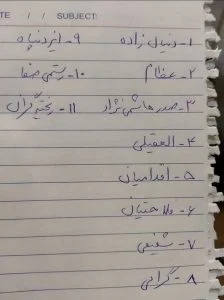 DATE / / SUBJECT:
۱- دنیال زاده
۲- عظام
۳- صدر هاشمی نژاد
۴- العقیلی
۵- اقدامیان
۶- ملاحتیان
۷- شفیعی
۸- گرامی
۹- ایزدپناه
۱۰- رستمی صفا
۱۱- ریخته گران